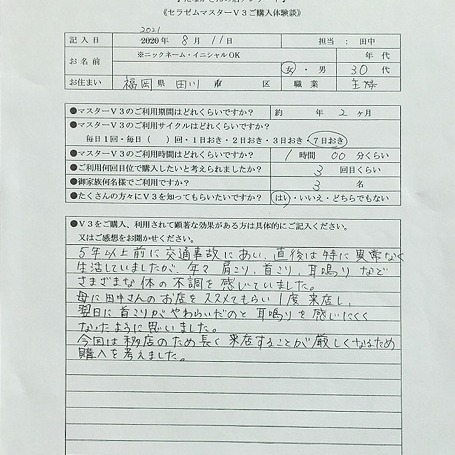 《セラゼムマスターV3ご購入体験談》
2021
記入日 2020年 8月 11日 担当：田中
お名前 ※ニックネーム・イニシャルOK 年代
女・男 30代
お住まい 福岡県 田川市 区 職業 主婦
●マスターV3のご利用期間はどれくらいですか？ 約 年 2ヶ月
●マスターV3のご利用サイクルはどれくらいですか？
毎日1回・毎日（ ）回・1日おき・2日おき・3日おき・7日おき
●マスターV3のご利用時間はどれくらいですか？ 1時間 00分くらい
●ご利用何回目位で購入したいと考えられましたか？ 3回目くらい
●御家族何名様でご利用ですか？ 3名
●たくさんの方々にV3を知ってもらいたいですか？ はい・いいえ・どちらでもない
●V3をご購入、利用されて顕著な効果がある方は具体的にご記入ください。
又はご感想をお聞かせください。
5年以上前に交通事故にあい、直後は特に異常なく
生活していましたが、年々肩こり、首こり、耳鳴りなど
さまざまな体の不調を感じていました。
母に田中さんのお店をススメてもらい1度来店し、
翌日に首こりがやわらいだのと耳鳴りを感じにくく
なったように思いました。
今回は移店のため長く来店することが厳しくなるため
購入を考えました。